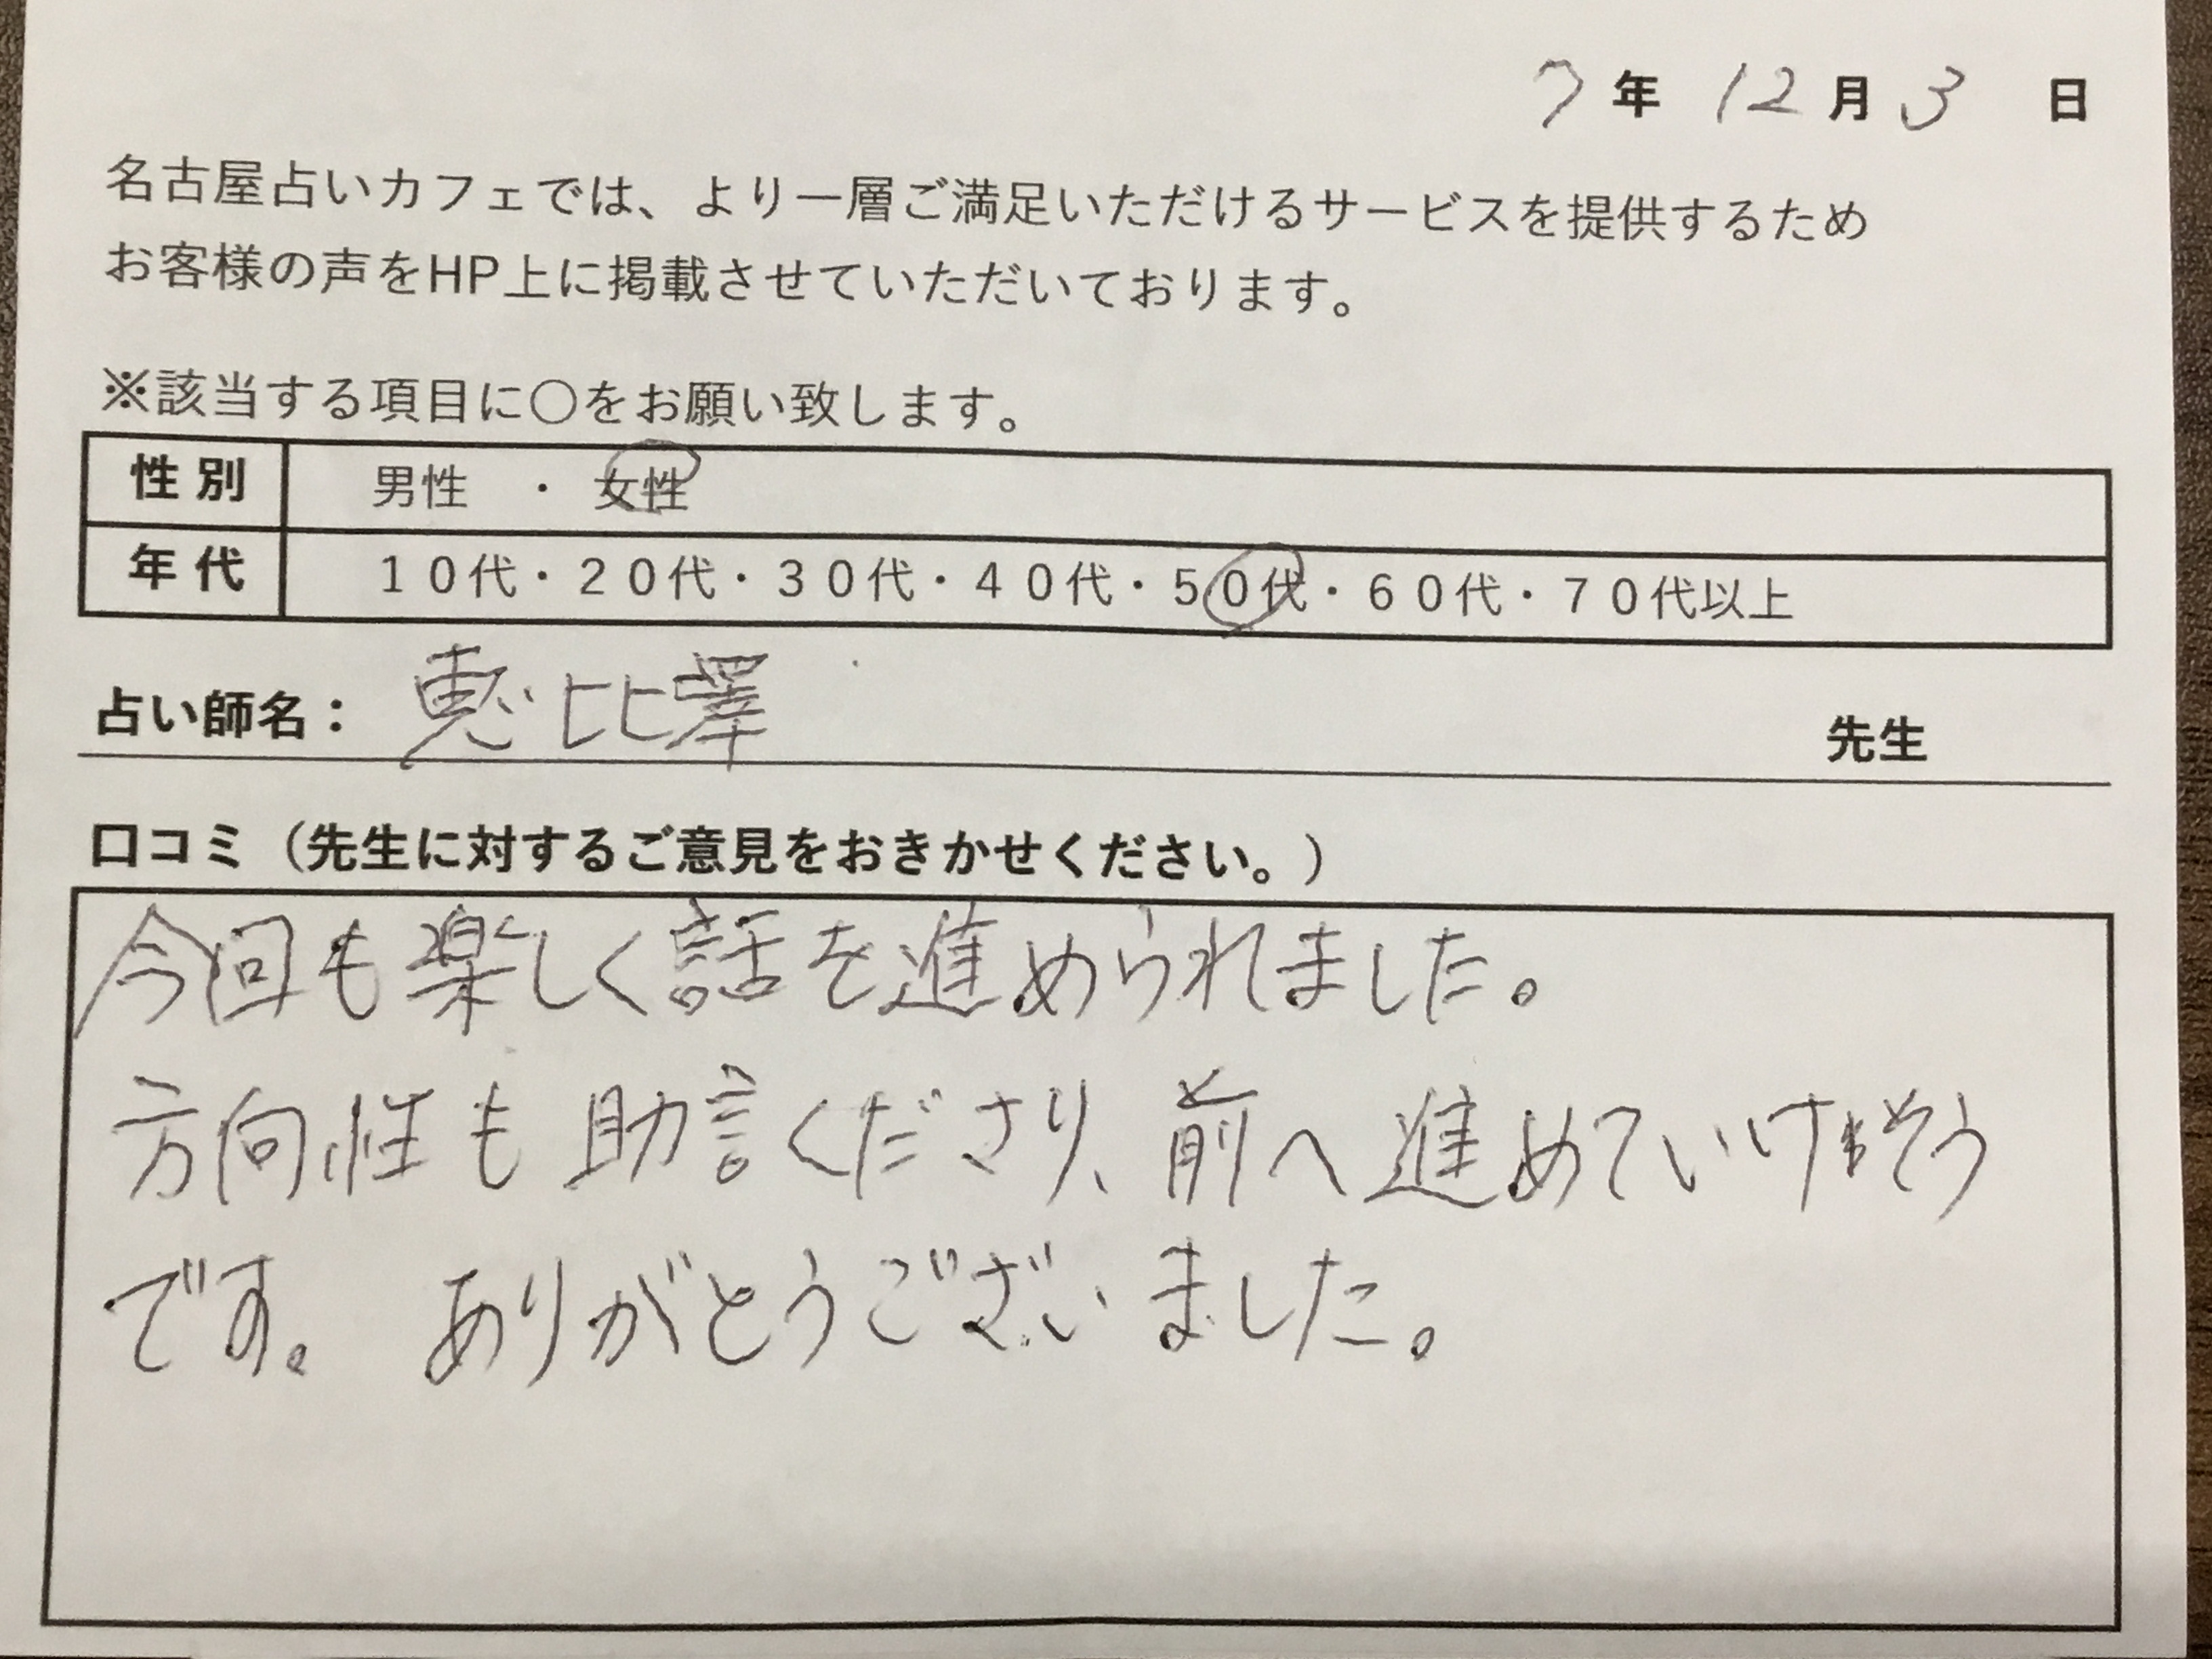 7年 12月 3日
名古屋占いカフェでは、より一層ご満足いただけるサービスを提供するため
お客様の声をHP上に掲載させていただいております。
※該当する項目に〇をお願い致します。
性別 男性 ・ 女性
年代 10代・20代・30代・40代・50代・60代・70代以上
占い師名： 恵比澤 先生
口コミ（先生に対するご意見をおきかせください。）
今回も楽しく話を進められました。
方向性も助言くださり、前へ進めていけそう
です。 ありがとうございました。